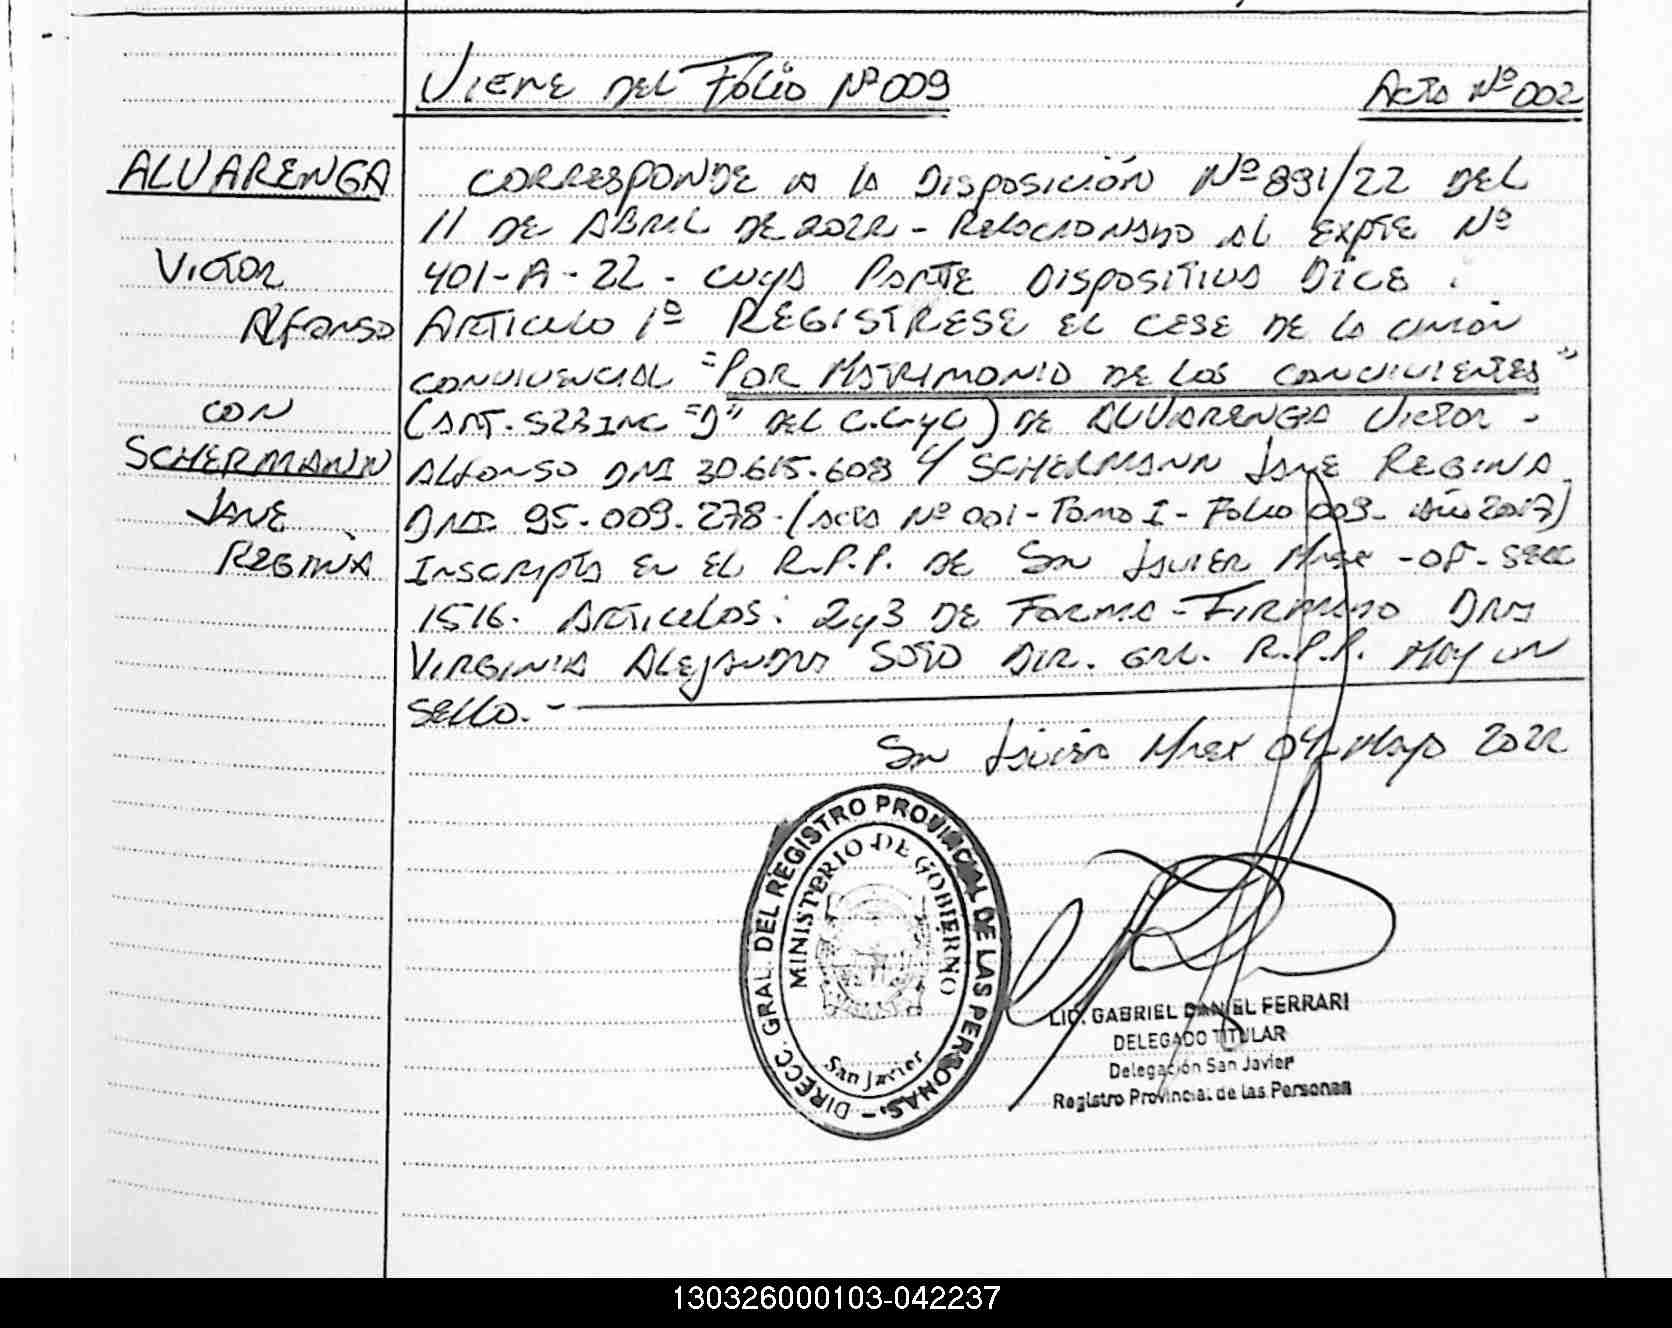 Viene del Folio Nº 009
Acta Nº 002
ALVARENGA
Victor
Alfonso
con
SCHERMANN
Jane
Regina
Corresponde a la Disposición Nº 891/22 del
11 de Abril de 2022 - Relacionado al Expte Nº
401-A-22 - cuya Parte Dispositiva Dice :
Articulo 1º REGISTRESE el cese de la union
convivencial "Por Matrimonio de los convivientes"
(Art. 523 Inc "D" del C.C. y C) de Alvarenga Victor -
Alfonso DNI 30.615.608 y Schermann Jane Regina
DNI 95.009.278-(Acta Nº 001-Tomo I - Folio 009- Año 2017)
Inscripta en el R.P.P. de San Javier Mnes -Of- Secc
1516. Articulos: 2 y 3 de Forma - Firmado Dra
Virginia Alejandra Soto Dir. Gral. R.P.P. Hay un
sello.-
San Javier Mnes 04 Mayo 2022
DIRECC. GRAL. DEL REGISTRO PROVINCIAL DE LAS PERSONAS.-
MINISTERIO DE GOBIERNO
San Javier
LIC. GABRIEL DANIEL FERRARI
DELEGADO TITULAR
Delegación San Javier
Registro Provincial de las Personas
130326000103-042237